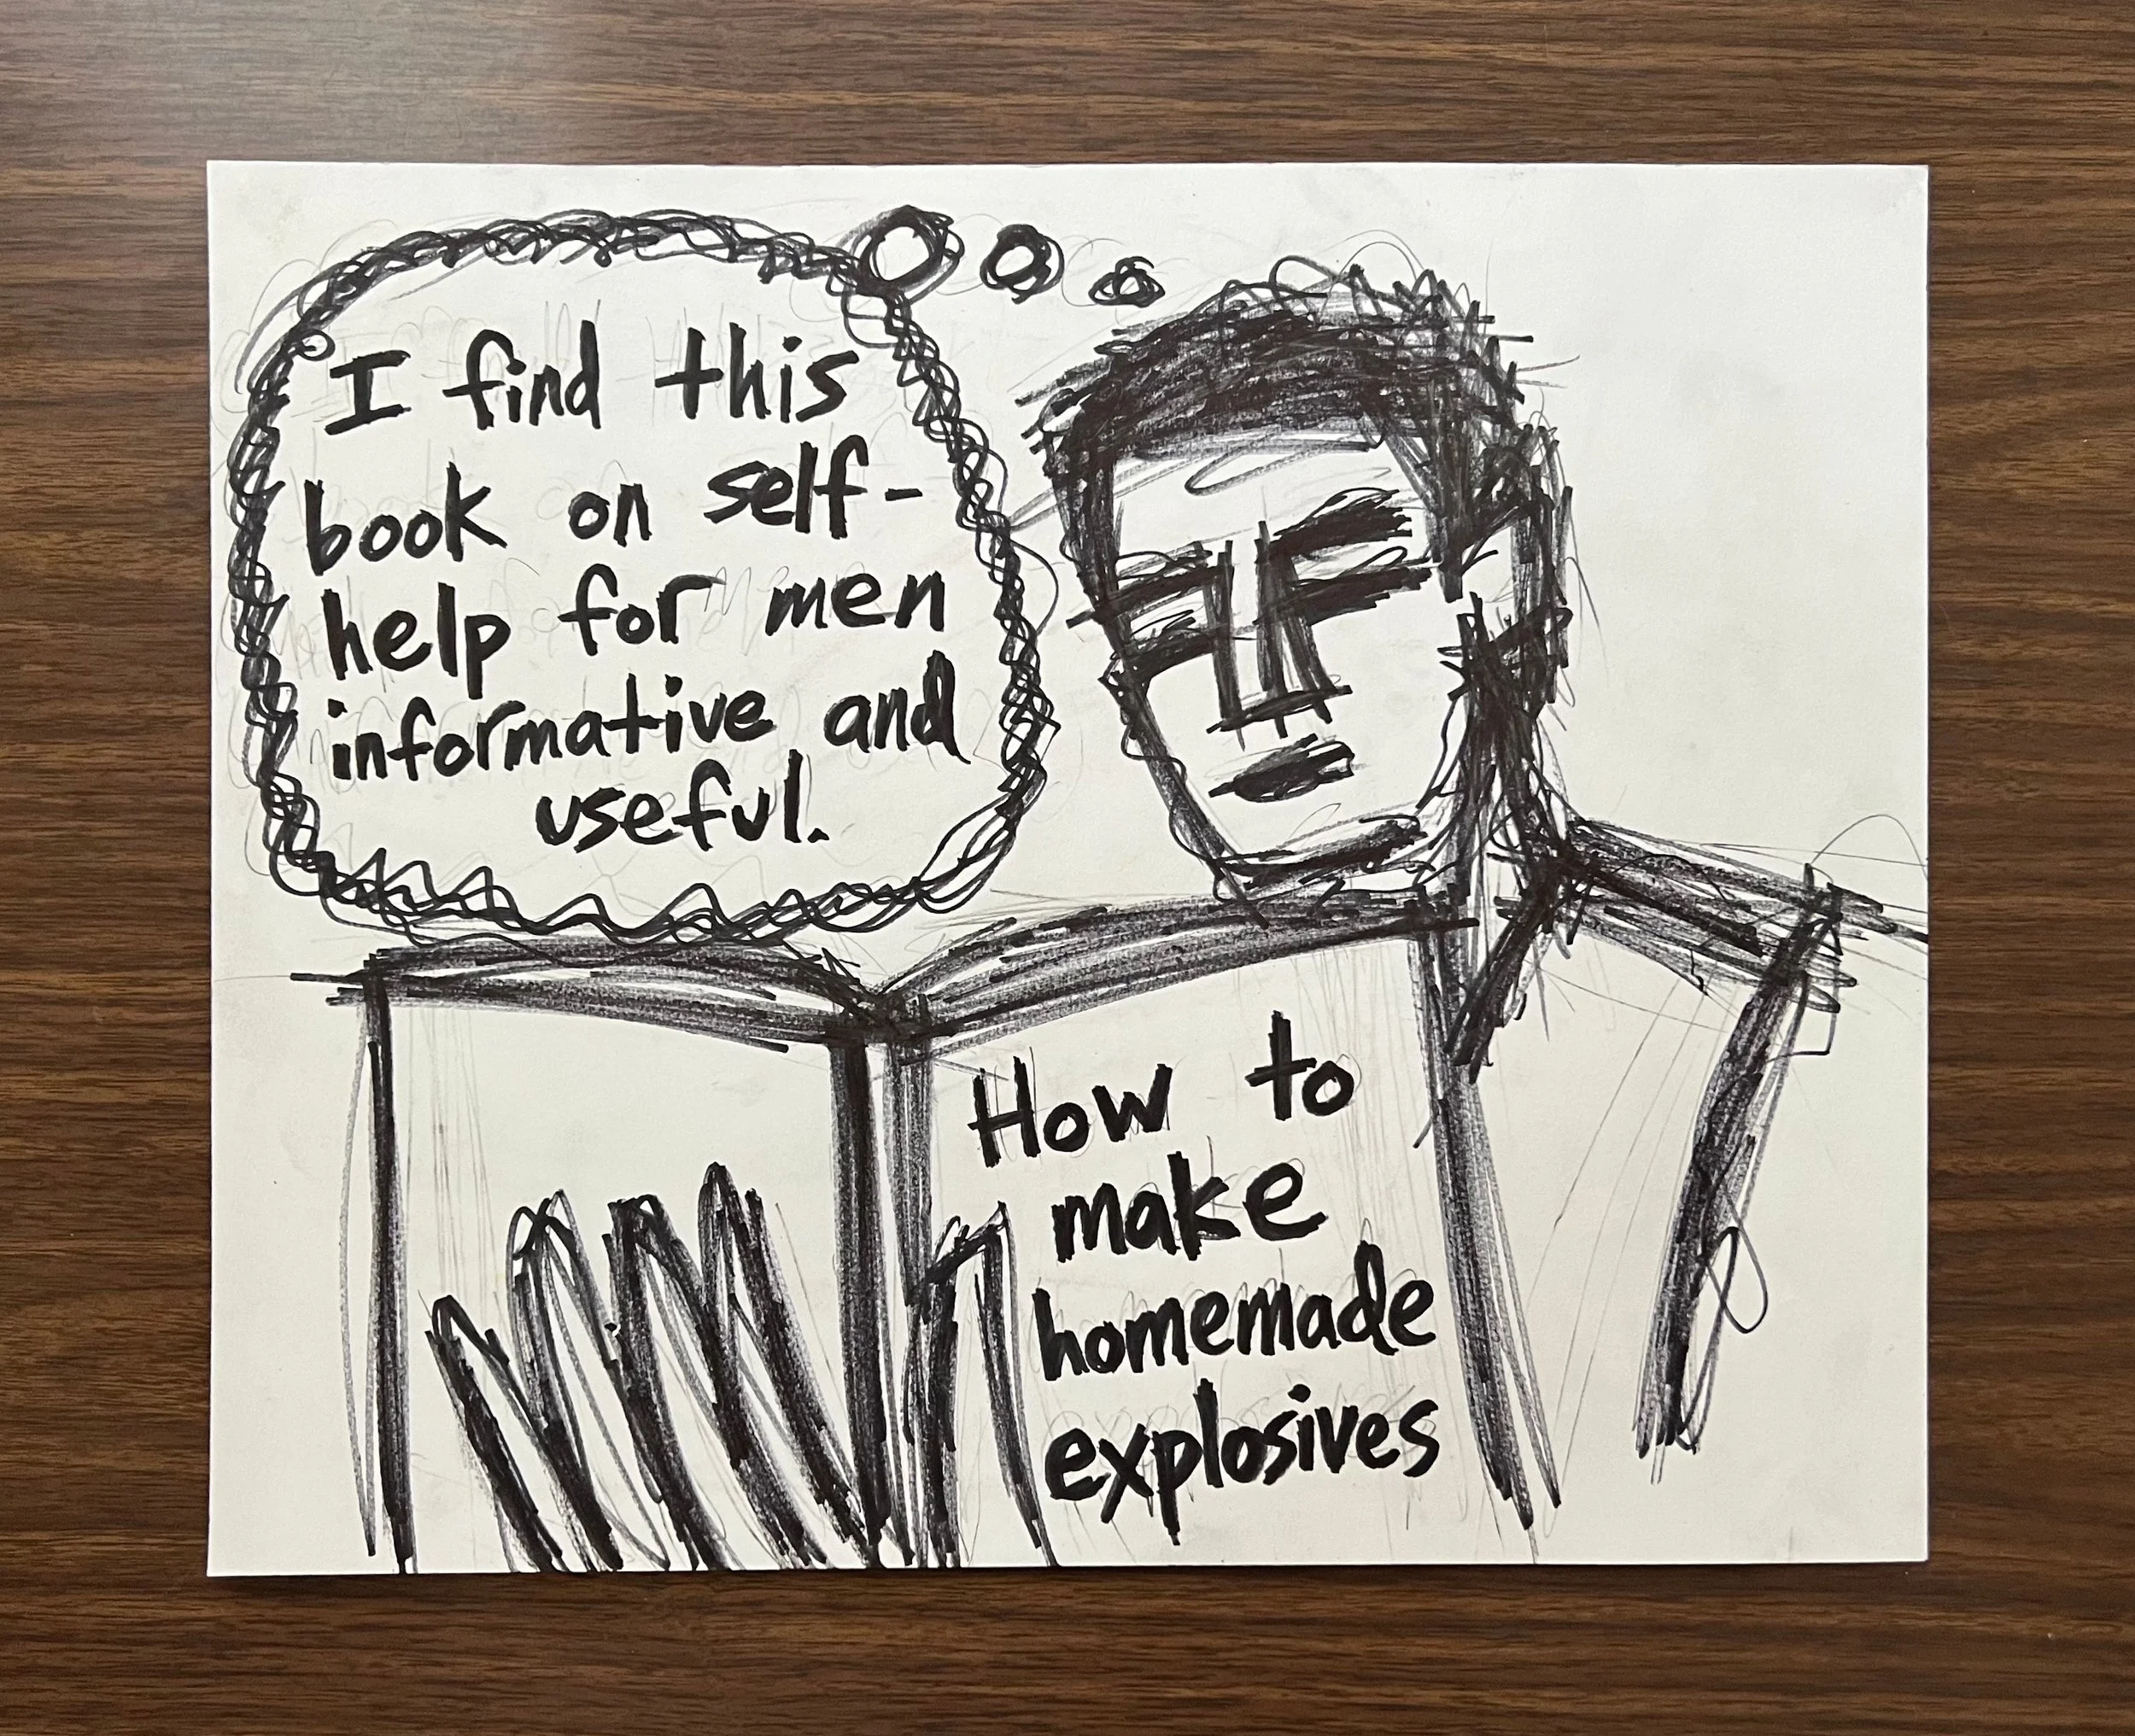 I find this
book on self-
help for men
informative and
useful.
How to
make
homemade
explosives